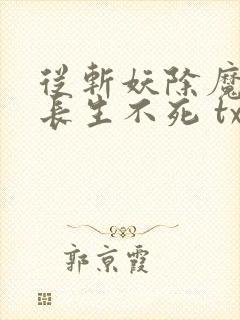 從斬妖除魔
長生不死 tx
郭京霞